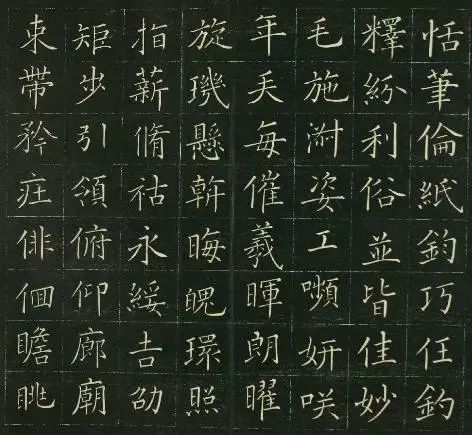 恬筆倫紙鈞巧任釣
釋紛利俗並皆佳妙
毛施淑姿工嚬妍咲
年矢每催羲暉朗曜
旋璣懸斡晦魄環照
指薪脩祜永綏吉劭
矩步引領俯仰廊廟
束帶矜莊俳佪瞻眺